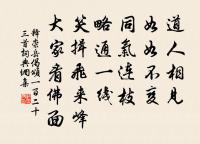 道人相見
如如不變
同氣連枝
略通一線
笑揖飛來峰
大家看佛面
釋崇岳偈頌一百二十
三首詞典網集